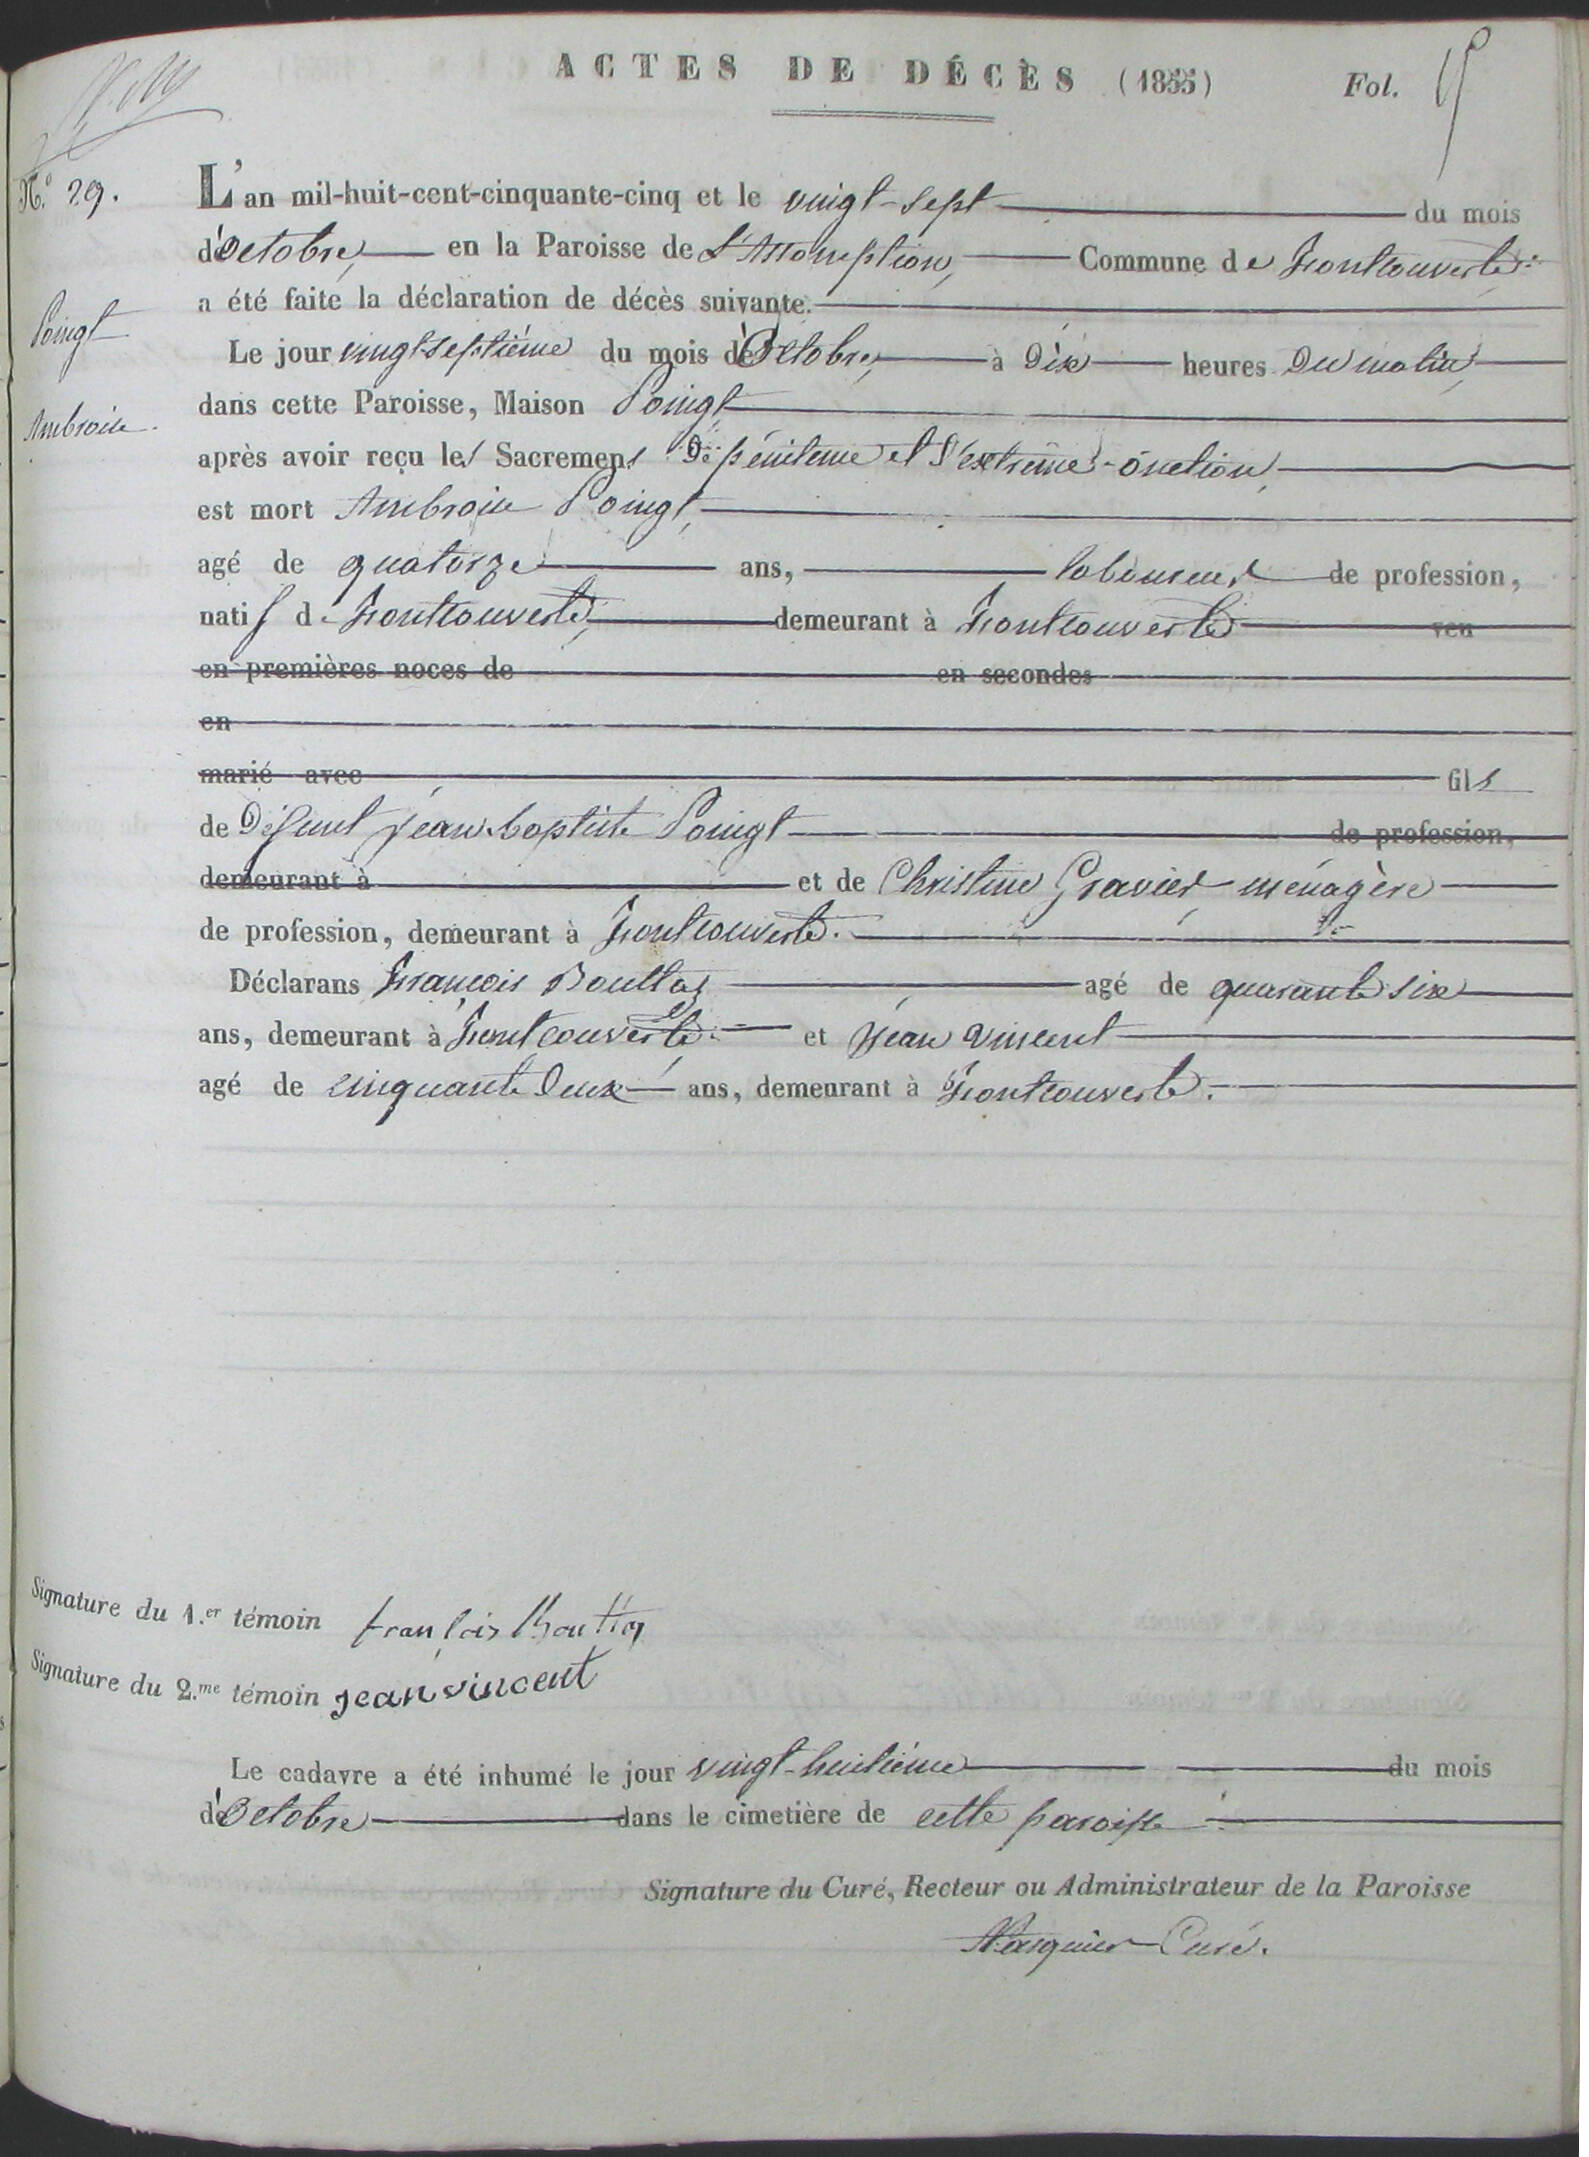 ACTES DE DÉCÈS (1855) Fol. 15
N.º 29. L'an mil-huit-cent-cinquante-cinq et le vingt-sept du mois
d'Octobre, en la Paroisse de L'Assomption, Commune de Fontcouverte
a été faite la déclaration de décès suivante.
Poingt
Le jour vingt-septième du mois d'Octobre, à Dix heures Du matin,
dans cette Paroisse, Maison Poingt
Ambroise.
après avoir reçu les Sacremens De pénitence et l'extrême-onction,
est mort Ambroise Poingt,
agé de quatorze ans, laboureur de profession,
natif de Fontcouverte, demeurant à Fontcouverte veu
en premières noces de en secondes
en
marié avec fils
de Défunt Jean-baptiste Poingt de profession,
demeurant à et de Christine Gravier ménagère
de profession, demeurant à Fontcouverte.
Déclarans François Bouttaz agé de quarante six
ans, demeurant à Fontcouverte et Jean Vincent
agé de cinquante deux ans, demeurant à Fontcouverte.
Signature du 1.er témoin françois Bouttaz
Signature du 2.me témoin jean vincent
Le cadavre a été inhumé le jour vingt-huitième du mois
d'Octobre dans le cimetière de cette paroisse
Signature du Curé, Recteur ou Administrateur de la Paroisse
Pasquier Curé.